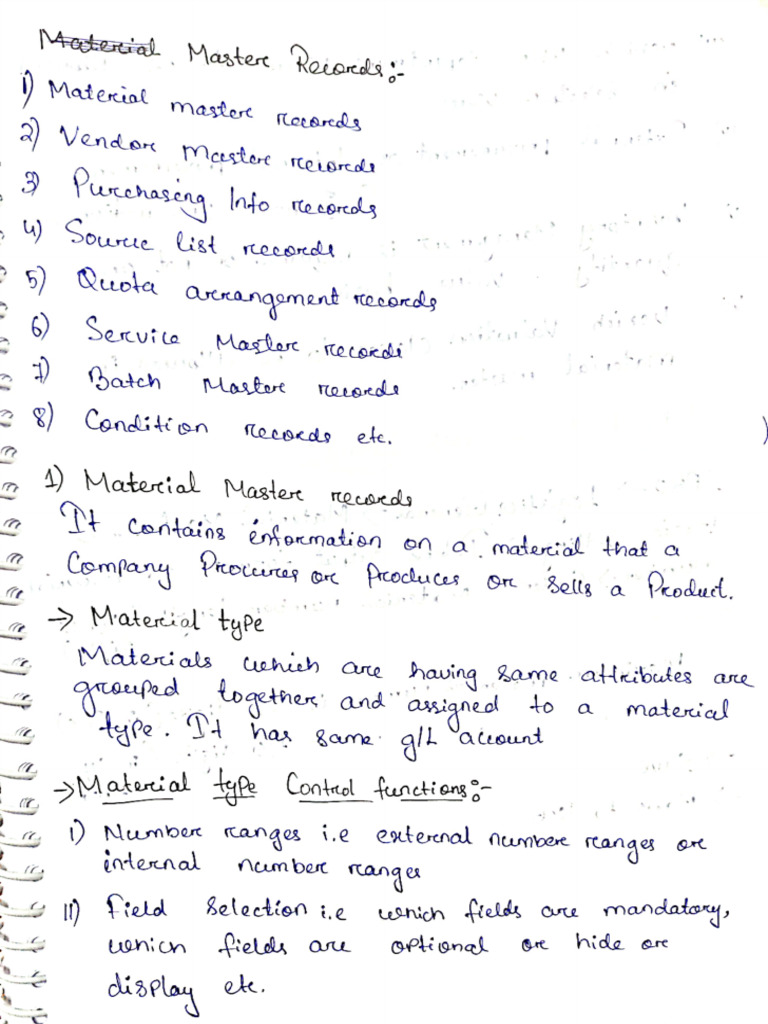 Material Master Records:-
1) Material master records
2) Vendor Master records
3) Purchasing Info records
4) Source list records
5) Quota arrangement records
6) Service Master records
7) Batch Master records
8) Condition records etc.
1) Material Master records
It contains information on a material that a
Company Procures or Produces or sells a Product.
→ Material type
Materials which are having same attributes are
grouped together and assigned to a material
type. It has same g/L account
→ Material type Control functions:-
i) Number ranges i.e external number ranges or
internal number ranges
ii) Field Selection i.e which fields are mandatory,
which fields are optional or hide or
display etc.